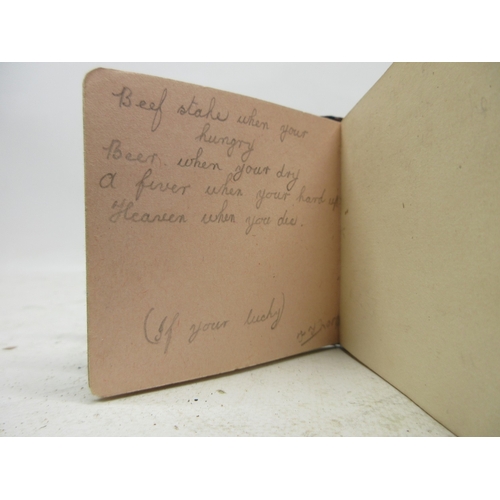 Beef stake when your
hungry
Beer. when your dry
A fiver when your hard up
Heaven when you die.
(If your lucky)